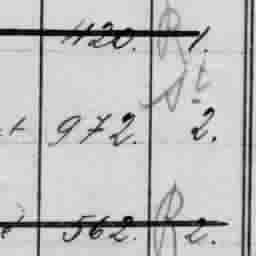 420. R 1.
St.
972. 2.
562. R 2.